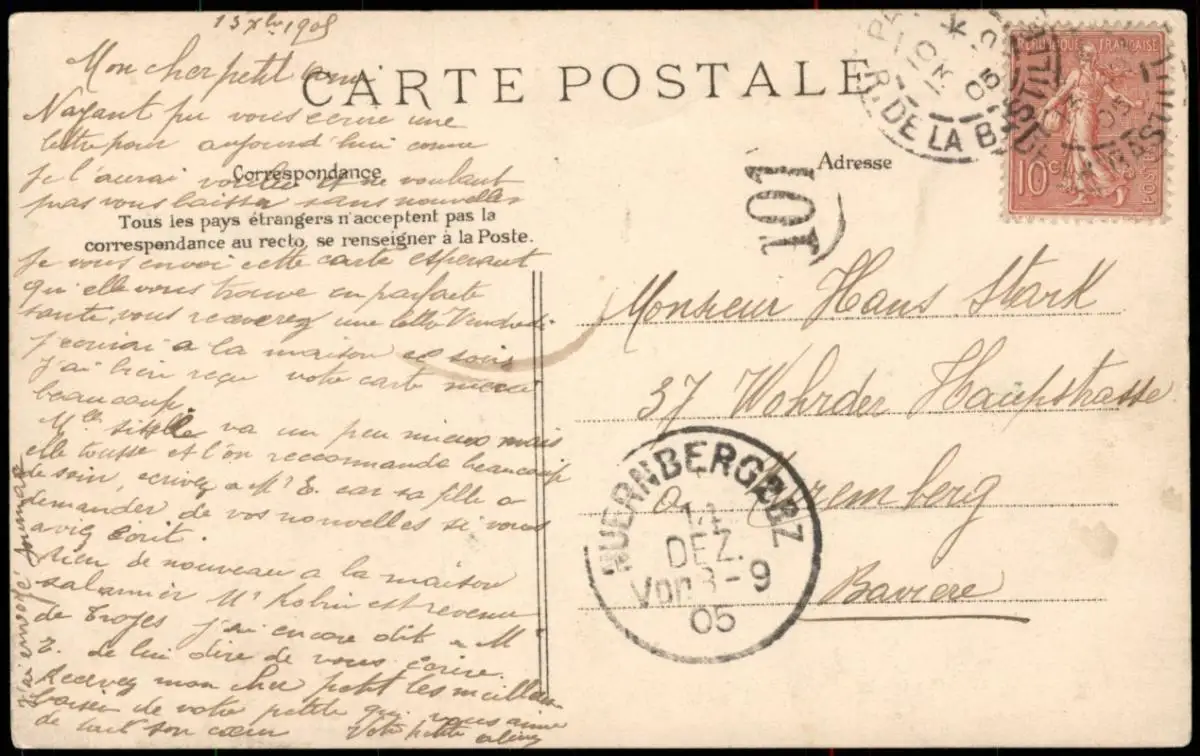 13 Xbre 1905
Mon cher petit ami
CARTE POSTALE
N'ayant pu vous écrire une
lettre pour aujourd'hui comme
je l'aurai voulu et ne voulant
pas vous laisser sans nouvelles
Correspondance
Tous les pays étrangers n'acceptent pas la
correspondance au recto, se renseigner à la Poste.
Je vous envoi cette carte esperant
qu'elle vous trouve en parfaite
santé, vous recevrez une lettre Vendredi
j'ecrirai a la maison ce soir
j'ai bien reçu votre carte merci
beaucoup
Mlle va un peu mieux mais
elle tousse et l'on reccommande beaucoup
de soin, ecrivez a Mr E. car sa fille a
demander de vos nouvelles si vous
aviez écrit.
Rien de nouveau a la maison
Mr est revenu
de Troyes j'ai encore dit a Mr
E. de lui dire de vous écrire.
Recevez mon cher petit les meilleurs
baisers de votre petite qui vous aime
de tout son cœur Votre petite
j'ai envoyé
Adresse
101
PARIS
R. DE LA BASTILLE
13
05
REPUBLIQUE FRANÇAISE
10c
POSTES
Monsieur Hans Stark
37 Wohrder Haupstrasse
Nuremberg
Baviere
NUERNBERG 2 BZ
14
DEZ.
Vor 8-9
05